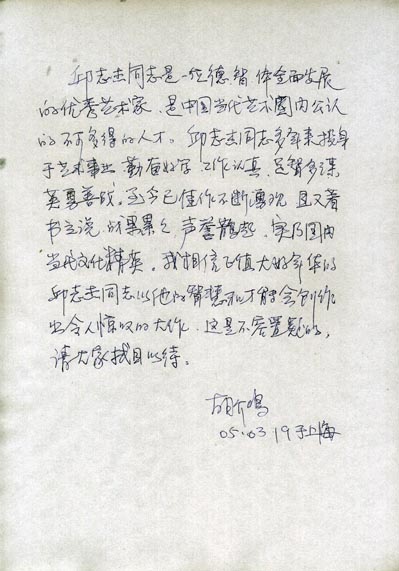 邱志杰同志是一位德、智、体全面发展
的优秀艺术家，是中国当代艺术圈内公认
的不可多得的人才。邱志杰同志多年来投身
于艺术事业，勤奋好学，工作认真，足智多谋，
英勇善战。至今已佳作不断涌现，且又著
书立说，成果累々，声誉鹊起，实乃国内
当代文化精英。我相信正值大好年华的
邱志杰同志以他的智慧和才能会创作
出令人惊叹的大作，这是不容置疑的，
请大家拭目以待。
胡介鸣
05.03.19于上海